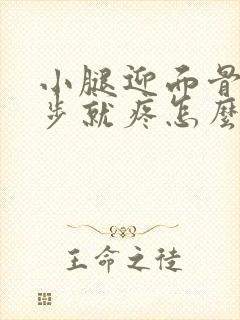 小腿迎面骨
步就疼怎麼
王命之徒